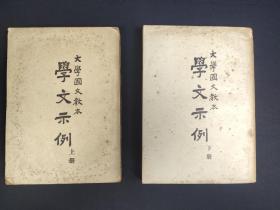 大學國文教本
學文示例
上冊
大學國文教本
學文示例
下冊